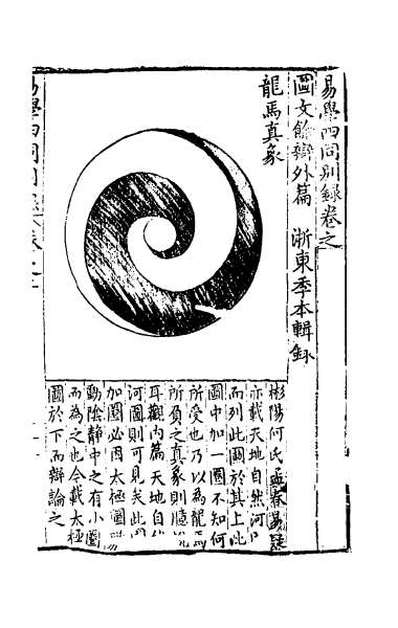 易學四同別錄卷之
圖文餘辯外篇 浙東季本輯錄
龍馬真象
彬陽何氏孟春易疑
亦載天地自然河
而列此圖於其上此
圖中加一圈不知何
所受也乃以為龍馬
所負之真象則臆
耳觀內篇天地自
河圖則可見矣此
加圈必因太極圖
動陰靜中之有小圈
而為之也今載太極
圖於下而辯論之
易學四同別錄卷之